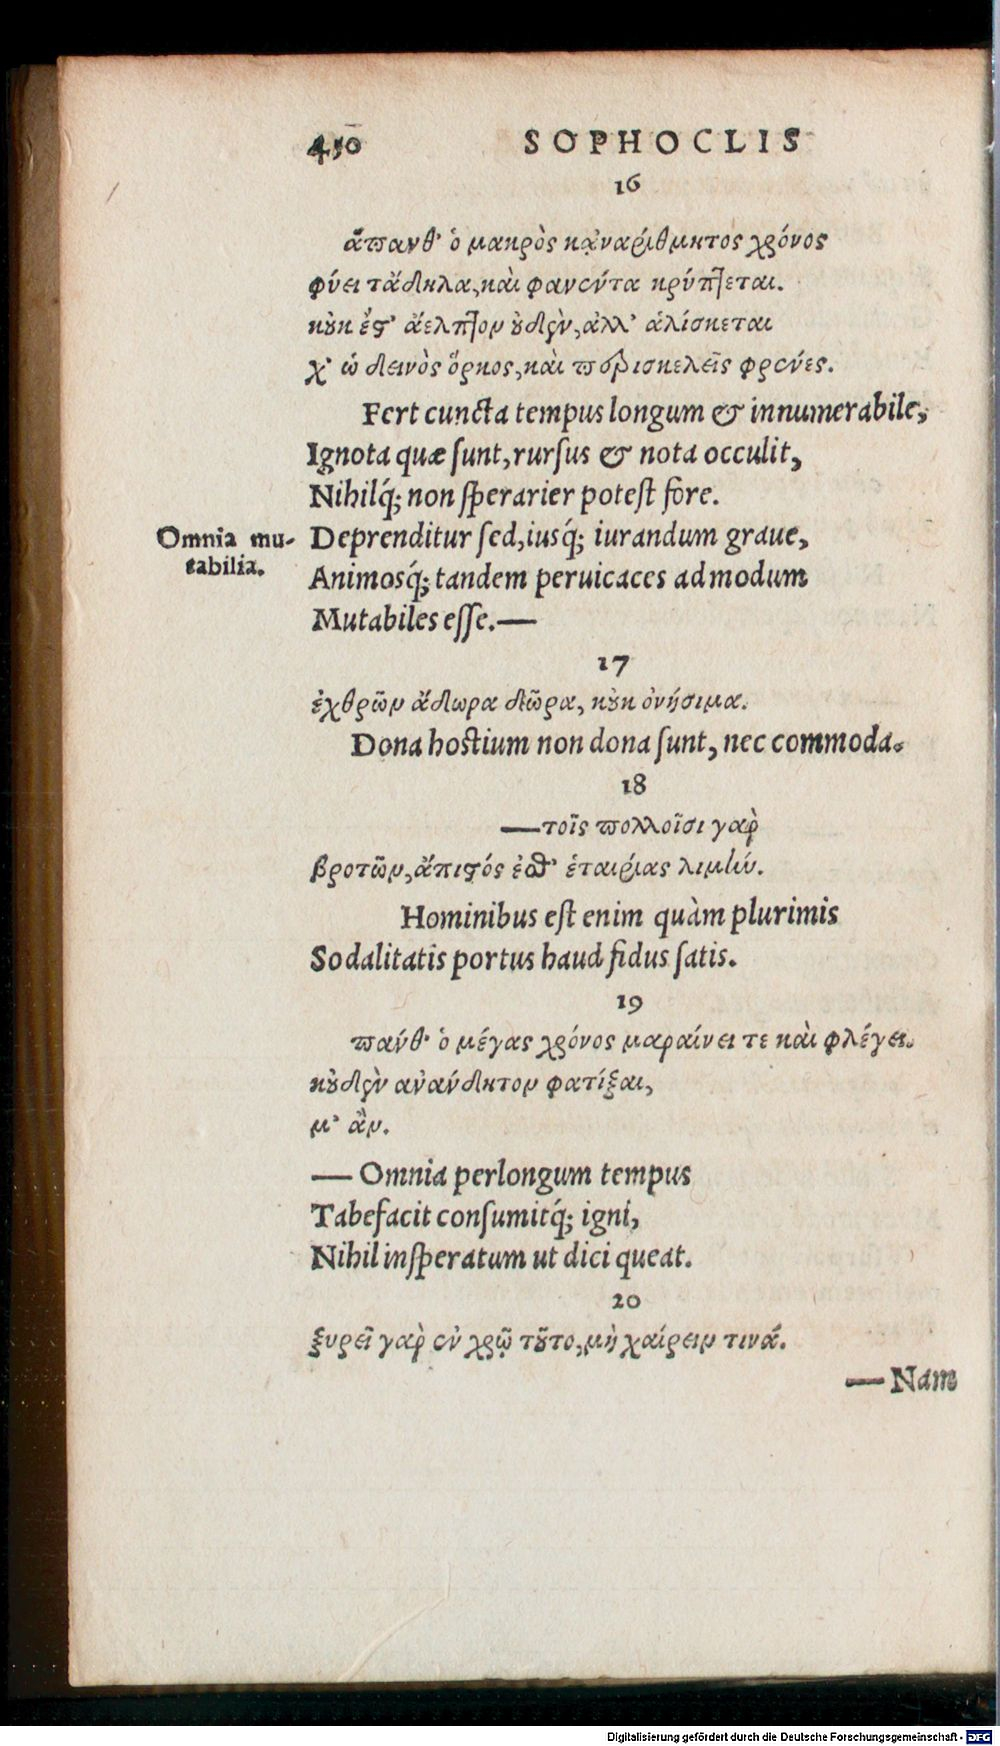 450 SOPHOCLIS
16
ἅπανθ' ὁ μακρὸς κἀναρίθμητος χρόνος
φύει τἄδηλα, καὶ φανέντα κρύπτεται.
κοὐκ ἔστ' ἄελπτον οὐδὲν, ἀλλ' ἁλίσκεται
χ' ὡ δεινὸς ὅρκος, καὶ περισκελεῖς φρένες.
Fert cuncta tempus longum & innumerabile,
Ignota quæ sunt, rursus & nota occulit,
Nihilq́; non sperarier potest fore.
Omnia mu-
tabilia.
Deprenditur sed, iusq́; iurandum graue,
Animosq́; tandem peruicaces admodum
Mutabiles esse.—
17
ἐχθρῶν ἄδωρα δῶρα, κοὐκ ὀνήσιμα.
Dona hostium non dona sunt, nec commoda.
18
—τοῖς πολλοῖσι γὰρ
βροτῶν, ἄπιστός ἐσθ' ἑταιρίας λιμήν.
Hominibus est enim quàm plurimis
Sodalitatis portus haud fidus satis.
19
πάνθ' ὁ μέγας χρόνος μαραίνει τε καὶ φλέγει.
κοὐδὲν ἀνάυδητον φατίξαι,
μ' ἄν.
— Omnia perlongum tempus
Tabefacit consumitq́; igni,
Nihil insperatum ut dici queat.
20
ξυρεῖ γὰρ ἐν χρῷ τοῦτο, μὴ χαίρειν τινά.
— Nam
Digitalisierung gefördert durch die Deutsche Forschungsgemeinschaft - DFG